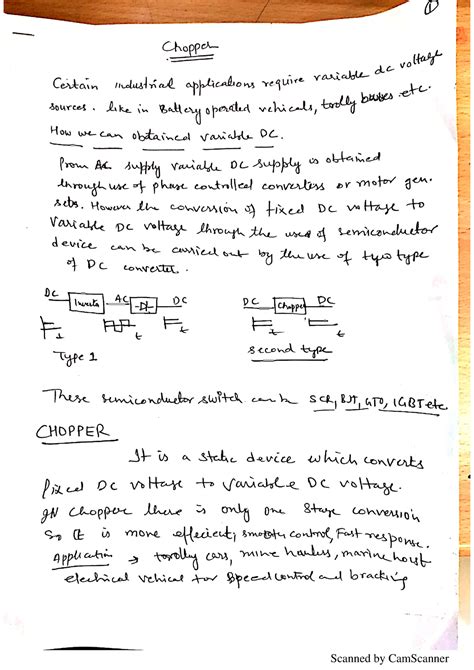 1
Chopper
Certain industrial applications require variable dc voltage
sources. like in Battery operated vehicals, trolly buses etc.
How we can obtained variable DC.
From AC supply variable DC supply is obtained
through use of phase controlled converters or motor gen.
sets. However the conversion of fixed DC voltage to
variable DC voltage through the use of semiconductor
device can be carried out by the use of two type
of DC converter.
DC Inverter AC DC
DC Chopper DC
t t t
t t
Type 1
second type
These semiconductor switch can be SCR, BJT, GTO, IGBT etc
CHOPPER
It is a static device which converts
fixed DC voltage to variable DC voltage.
IN chopper there is only one stage conversion
so it is more efficient, smooth control, Fast response.
Application → trolly cars, mine haulers, marine hoist
electrical vehical for speed control and bracking
Scanned by CamScanner